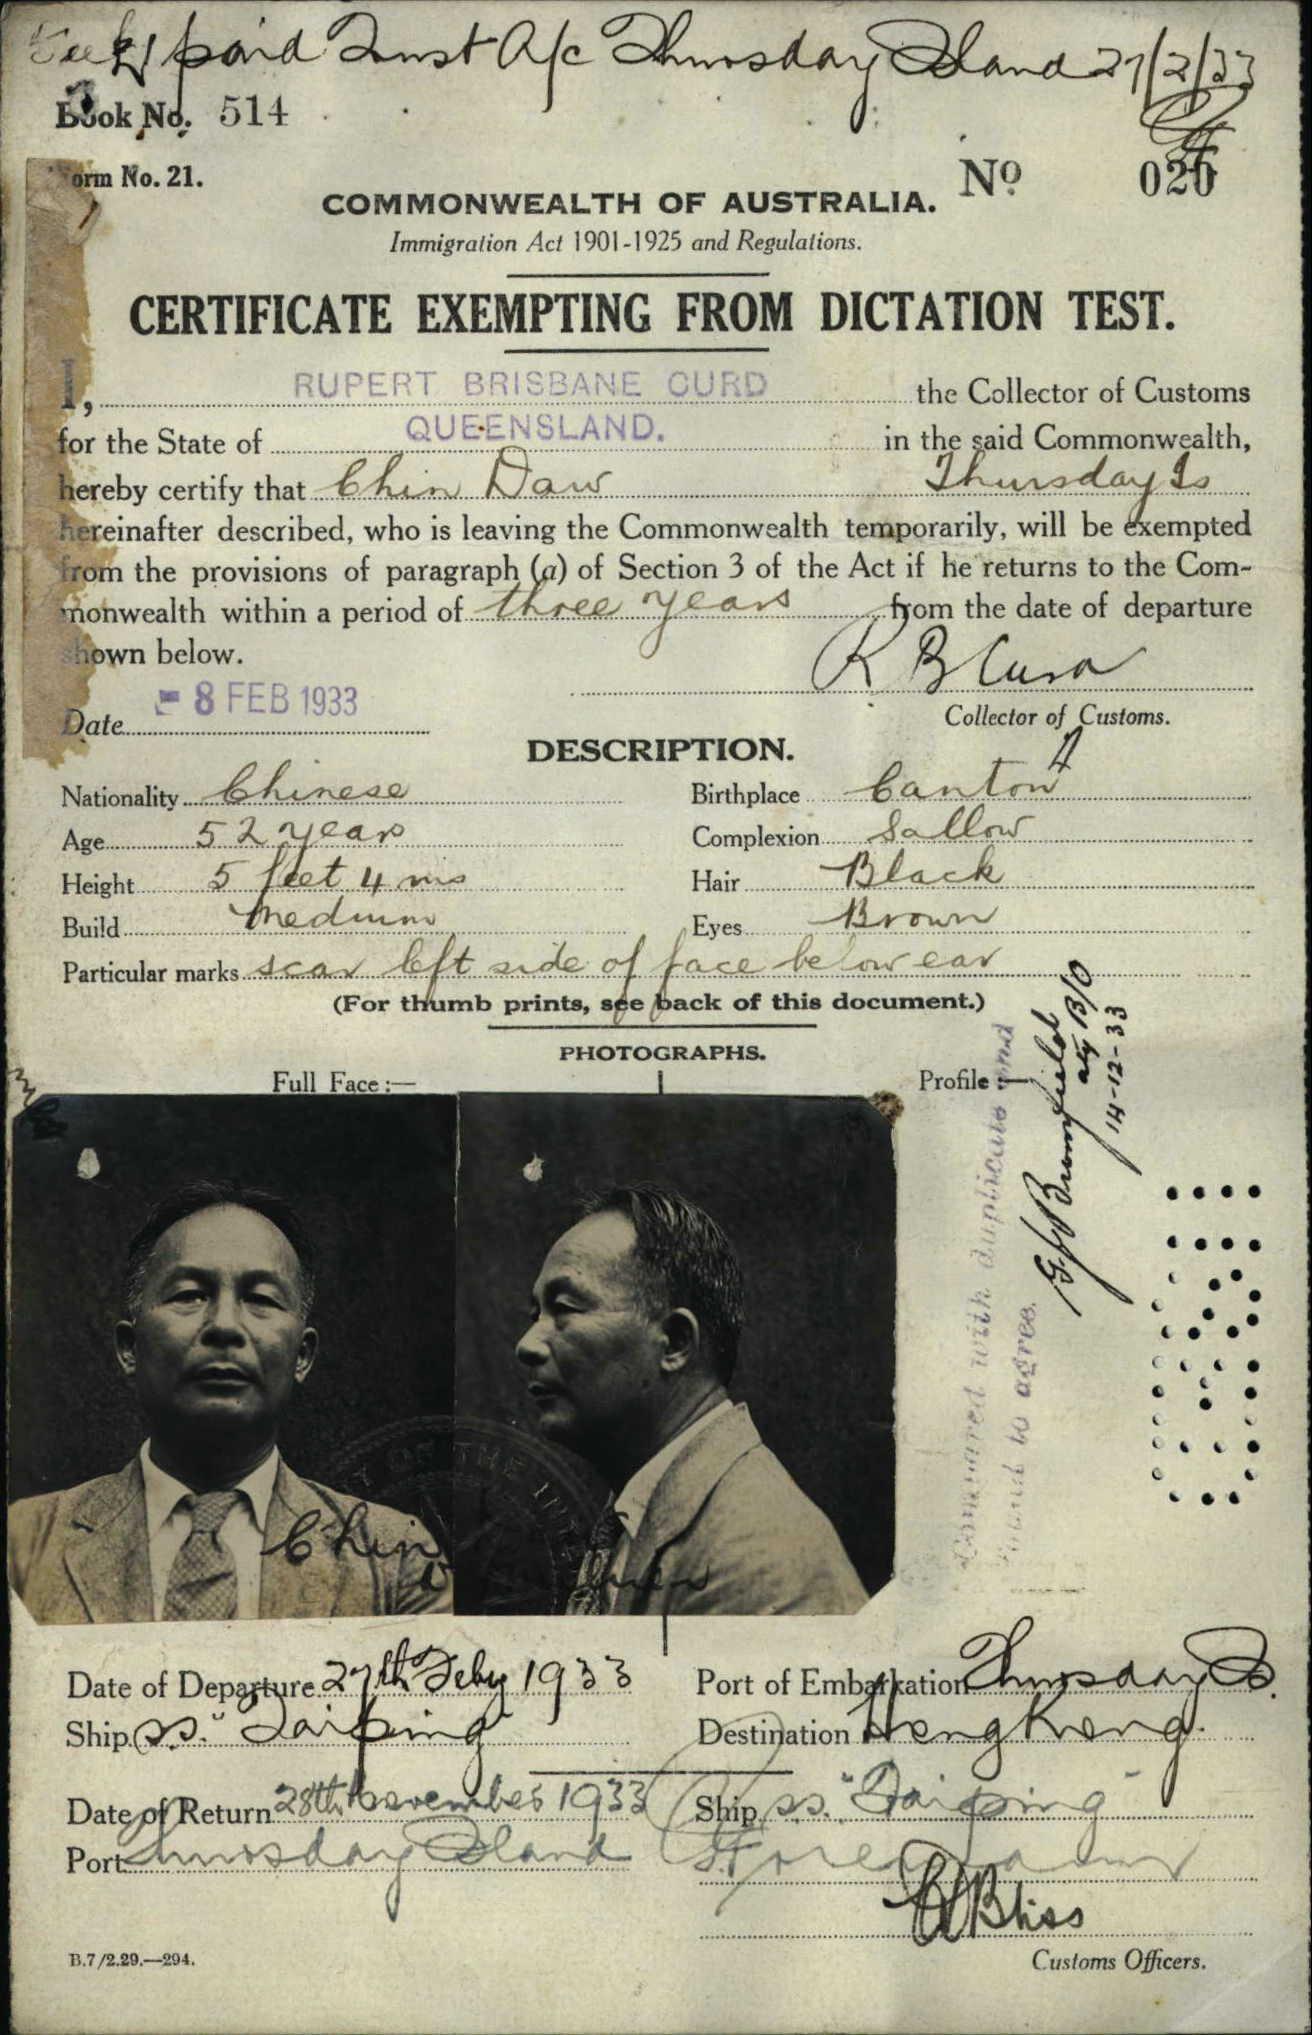 Fee £1 paid Trust A/c Thursday Island 27/2/33
Book No. 514
Form No. 21.
No 020
COMMONWEALTH OF AUSTRALIA.
Immigration Act 1901-1925 and Regulations.
CERTIFICATE EXEMPTING FROM DICTATION TEST.
I, RUPERT BRISBANE CURD the Collector of Customs
for the State of QUEENSLAND. in the said Commonwealth,
hereby certify that Chin Daw Thursday Is
hereinafter described, who is leaving the Commonwealth temporarily, will be exempted
from the provisions of paragraph (a) of Section 3 of the Act if he returns to the Com-
monwealth within a period of three years from the date of departure
shown below.
R B Curd
Date - 8 FEB 1933
Collector of Customs.
DESCRIPTION.
Nationality Chinese Birthplace Canton
Age 52 years Complexion Sallow
Height 5 feet 4 ins Hair Black
Build Medium Eyes Brown
Particular marks scar left side of face below ear
(For thumb prints, see back of this document.)
PHOTOGRAPHS.
Full Face:— Profile:—
Compared with duplicate and
found to agree.
14-12-33
OF THE
Chin
Date of Departure 27th Feby 1933 Port of Embarkation Thursday Is.
Ship s.s. "Taiping" Destination Hong Kong.
Date of Return 28th November 1933 Ship s.s. "Taiping"
Port Thursday Island
Bliss
B.7/2.29.—294.
Customs Officers.